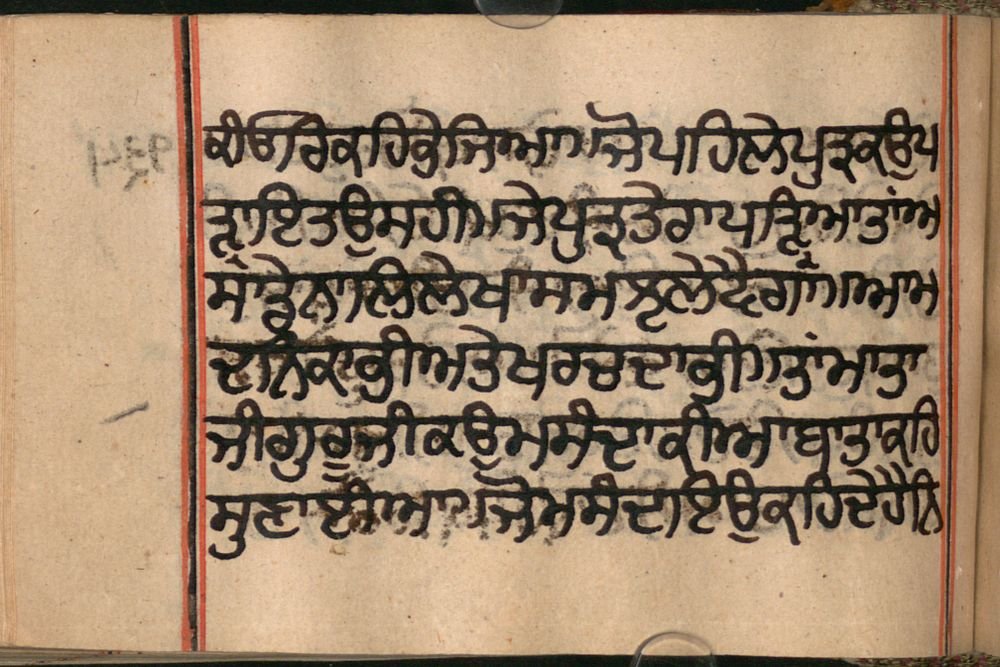 ਕੀਓਨਿਕਹਿਕੇਜਿਆਜੋਪਹਿਲੇਪੁੜਕਉਪ
ੜਾਇਤਉਸਹੀਮਜੇਪੁੜਤੇਰਾਪੜਿਆਤਾਂਅ
ਸਾਡੇਨਾਲਿਲੇਖਾਸਮਲ੍ਰਲੇਦੈਗਾਂਅਾਮ
ਦਨਿਕਾਭੀਅਤੇਖਰਚਦਾਭੀਤਾਂਮਾਤਾ
ਜੀਗੁਰੂਜੀਕਉਮਸੰਦਾਕੀਆਬਾਤਾਕਹਿ
ਸੁਣਾਈਆਜੋਮਸੰਦਾਇਉਕਹਿਦੇਹੈਨਿ